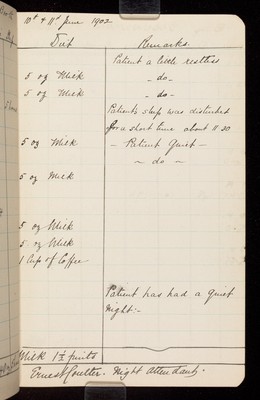 10th & 11th June 1902
Diet Remarks.
Patient a little restless
5 oz Milk - do -
5 oz Milk - do -
Patient's sleep was disturbed
for a short time about 11.30
5 oz Milk - Patient Quiet -
- do -
5 oz Milk
5 oz Milk
5 oz Milk
1 Cup of Coffee
Patient has had a quiet
Night:-
Milk 1½ pints
Ernest Coulter. Night Attendant.